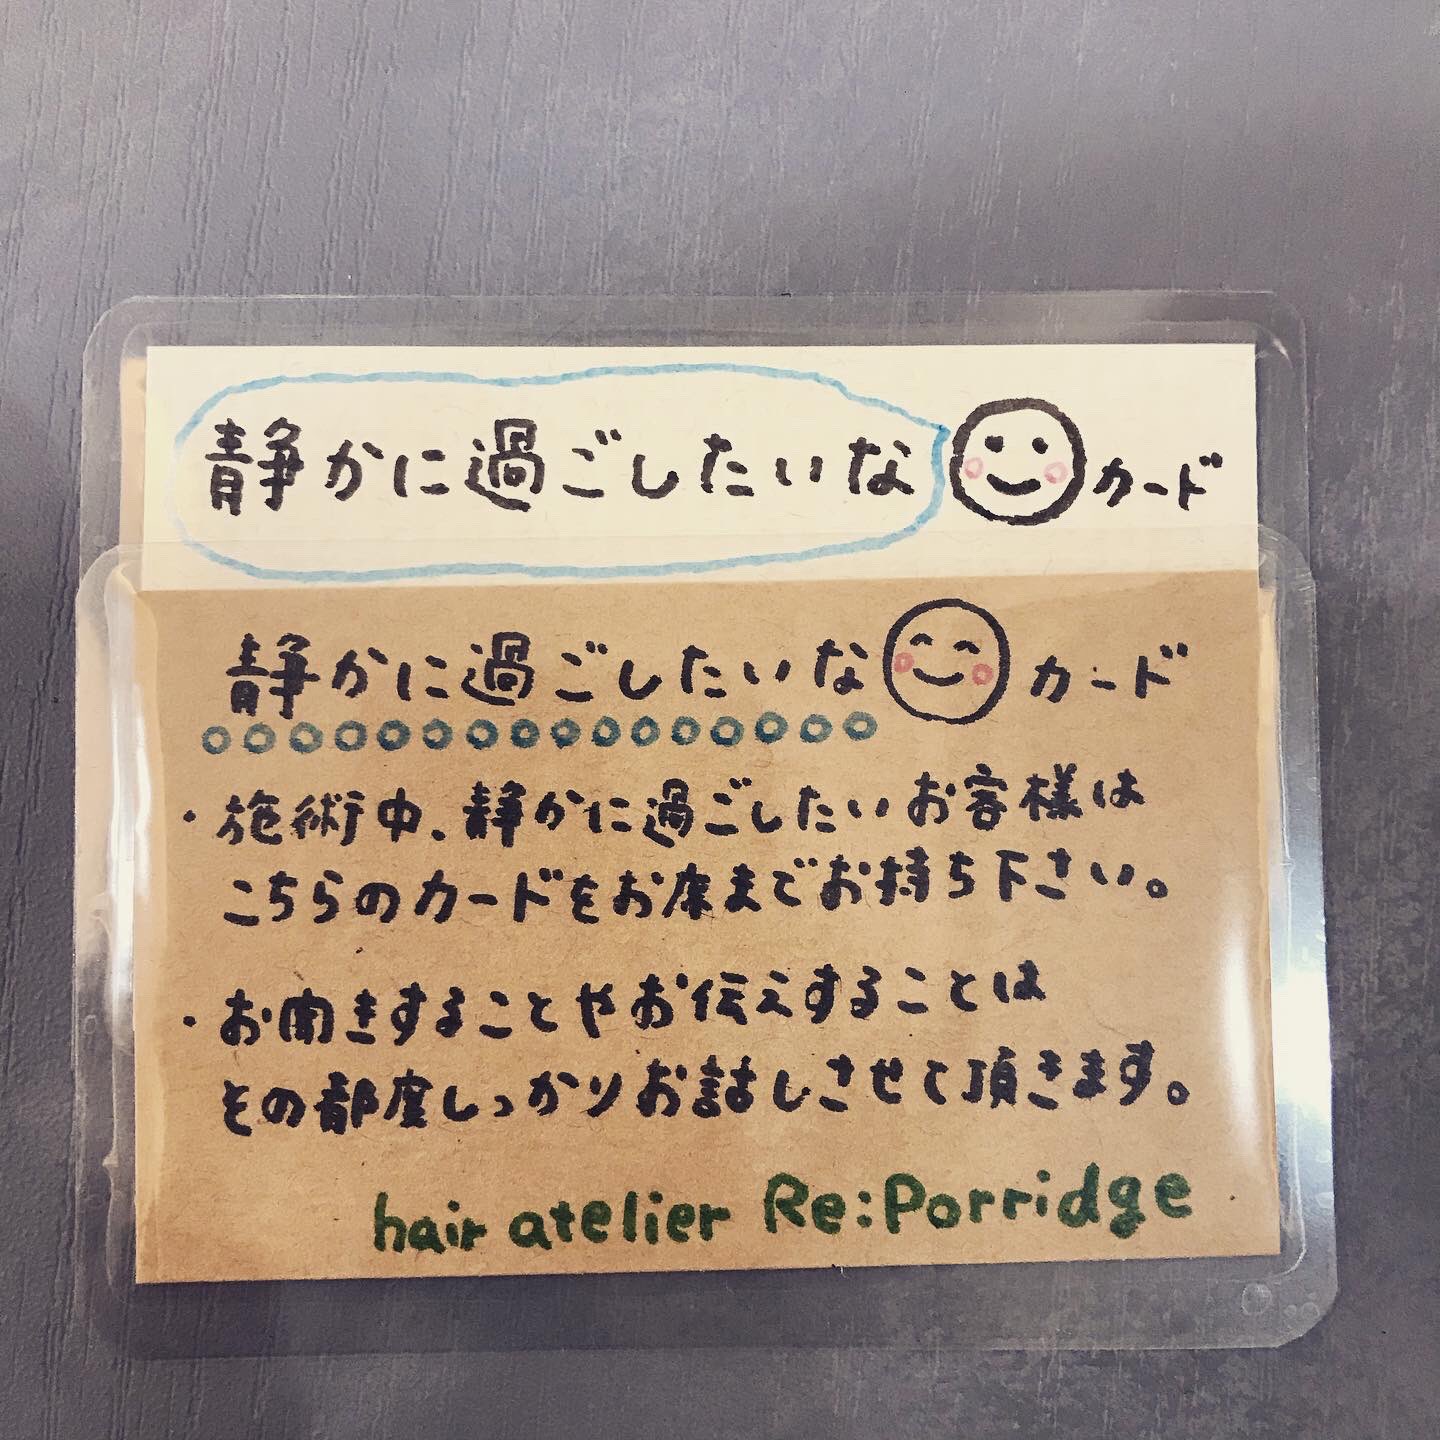 静かに過ごしたいな カード
静かに過ごしたいな カード
・施術中、静かに過ごしたいお客様は
こちらのカードをお席までお持ち下さい。
・お聞きすることやお伝えすることは
その都度しっかりお話しさせて頂きます。
hair atelier Re:Porridge